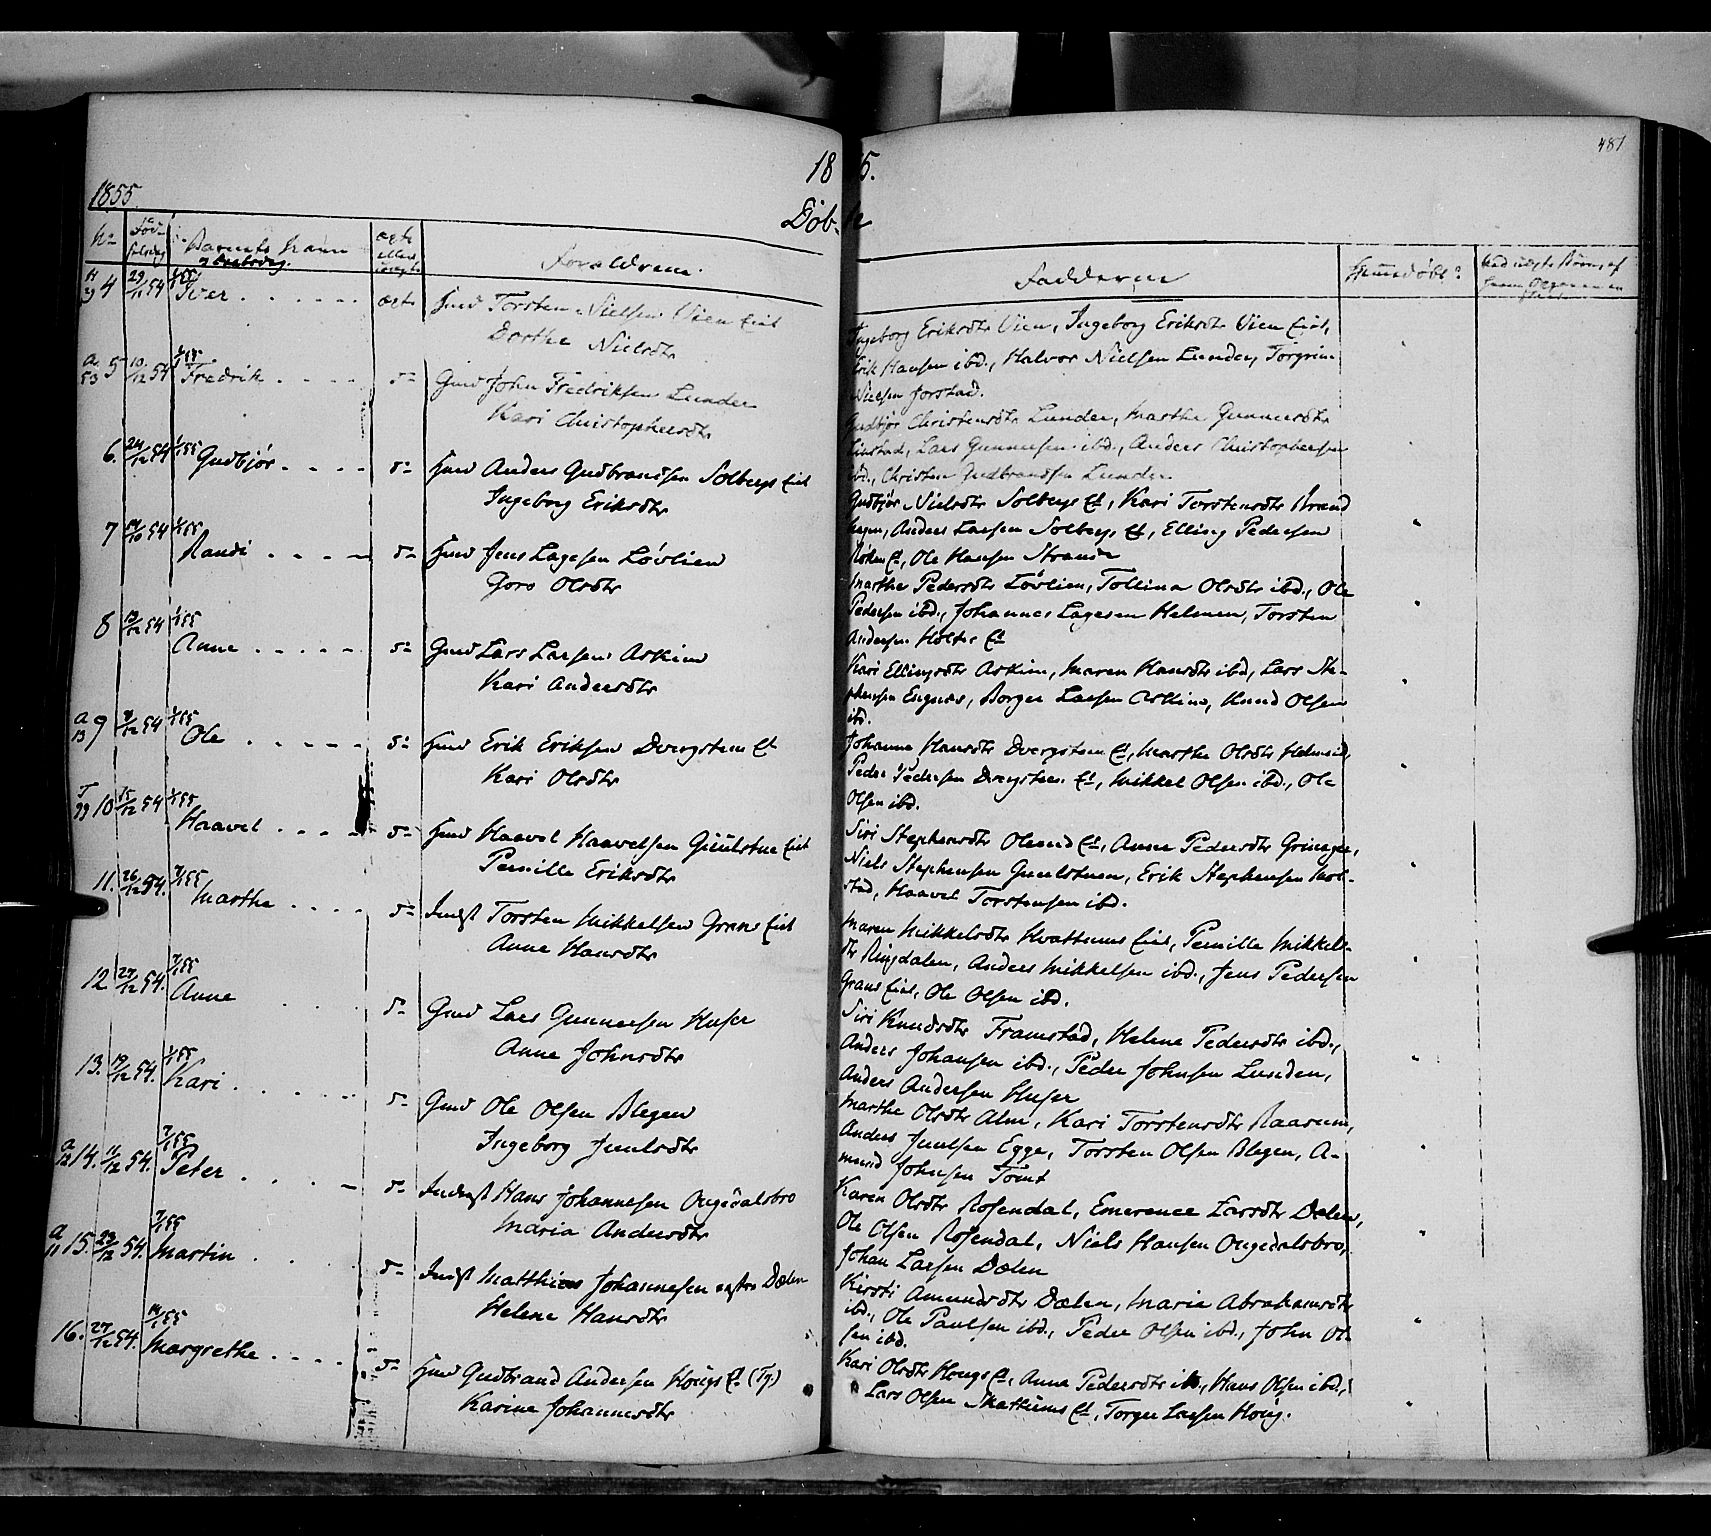 487
1855.
18 5.
Døb- te
No Fød- selsdag Barnets Navn og Daabsdag. ægte eller uægte Forældrene. Fadderne Hjemmedøbt?
4 29/11 54 1/1 55 Iver ægte Huusm Torsten Nielsen Vien Eiet
Dorthe Nielsdtr
Ingeborg Eriksdtr Vien, Ingeborg Eriksdtr Vien Eiet,
Erik Hansen ibd., Halvor Nielsen Lunder, Torgrim
Nielsen Jorstad.
5 10/12 54 1/1 55 Fredrik Gmd John Fredriksen Lunder
Kari Christophersdtr
Gudbjør Christensdtr Lunder, Marthe Gunnersdtr
Lars Gunnersen ibd., Anders Christophersen
ibd., Christen Gudbrandsen Lunder
6. 24/12 54 1/1 55 Gudbjør Anders Gudbrandsen Solbergs Eiet
Ingeborg Eriksdtr
Gudbjør Nielsdtr Solbergs Et, Kari Torstensdtr Brand
hagen, Anders Larsen Solbergs Et, Elling Pedersen
Et, Ole Hansen Strande
7 1/1 55 Randi Jens Lagesen Løvlien
Goro Olsdtr
Marthe Pedersdtr Løvlien, Tolline Olsdtr ibd., Ole
Pedersen ibd., Johannes Lagesen Helmen, Torsten
Andersen Holter Et
8 13/12 54 1/1 55 Anne Gmd Lars Larsen Askim
Kari Andersdtr
Kari Ellingsdtr Askim, Maren Hansdtr ibd, Lars Ste-
phensen Engnæs, Borger Larsen Askim, Knud Olsen
ibd.
9 9/12 54 1/1 55 Ole Erik Eriksen Dvergsteen Et
Kari Olsdtr
Johanne Hansdtr Dvergsteen Et, Marthe Olsdtr
Peder Pedersen Dvergsteen Et, Mikkel Olsen ibd., Ole
Olsen ibd.
10 15/12 54 1/1 55 Haavel Haavel Haavelsen Eiet
Pernille Eriksdtr
Siri Stephensdtr Et, Anne Pedersdtr Grinager,
Niels Stephensen Erik Stephensen Mol-
stad, Haavel Torstensen ibd.
11. 26/12 54. 7/1 55 Marthe Indst Torsten Mikkelsen Grans Eiet
Anne Hansdtr
Maren Mikkelsdtr Hvattums Eiet, Pernille Mikkels-
dtr Ringdalen, Anders Mikkelsen ibd., Jens Pedersen
Grans Eiet, Ole Olsen ibd.
12. 27/12 54. 7/1 55 Anne Gmd Lars Gunnersen Huser
Anne Johnsdtr
Siri Knudsdtr Framstad, Helene Pedersdtr ibd.,
Anders Johansen ibd., Peder Johnsen Lunden,
Anders Andersen Huser
13. 19/12 54. 1/1 55 Kari Gmd Ole Olsen Blegen
Ingeborg Juulsdtr
Marthe Olsdtr Alm, Kari Torstensdtr Raasum,
Anders Juulsen Egge, Torsten Olsen Blegen, A-
mund Johnsen Tomt
14. 11/12 54. 7/1 55 Peter Inderst Hans Johannesen Augedalsbro
Maria Andersdtr
Karen Olsdtr Rosendal, Emerence Larsdtr Dælen,
Ole Olsen Rosendal, Niels Hansen Augedalsbro,
Johan Larsen Dælen
15. 23/12 54. 7/1 55 Martin Indst Matthias Johannesen østre Dælen
Helene Hansdtr
Kirsti Amundsdtr Dælen, Marie Abrahamsdtr
ibd., Ole Paulsen ibd., Peder Olsen ibd., John Ol-
sen ibd.
16. 27/12 54. 14/1 55 Margrethe Gudbrand Andersen Hougs Et (Tg.)
Karine Johannesdtr
Kari Olsdtr Hougs Et, Anna Pedersdtr ibd., Hans Olsen ibd.,
Lars Olsen Skattums Et, Torger Larsen Houg.